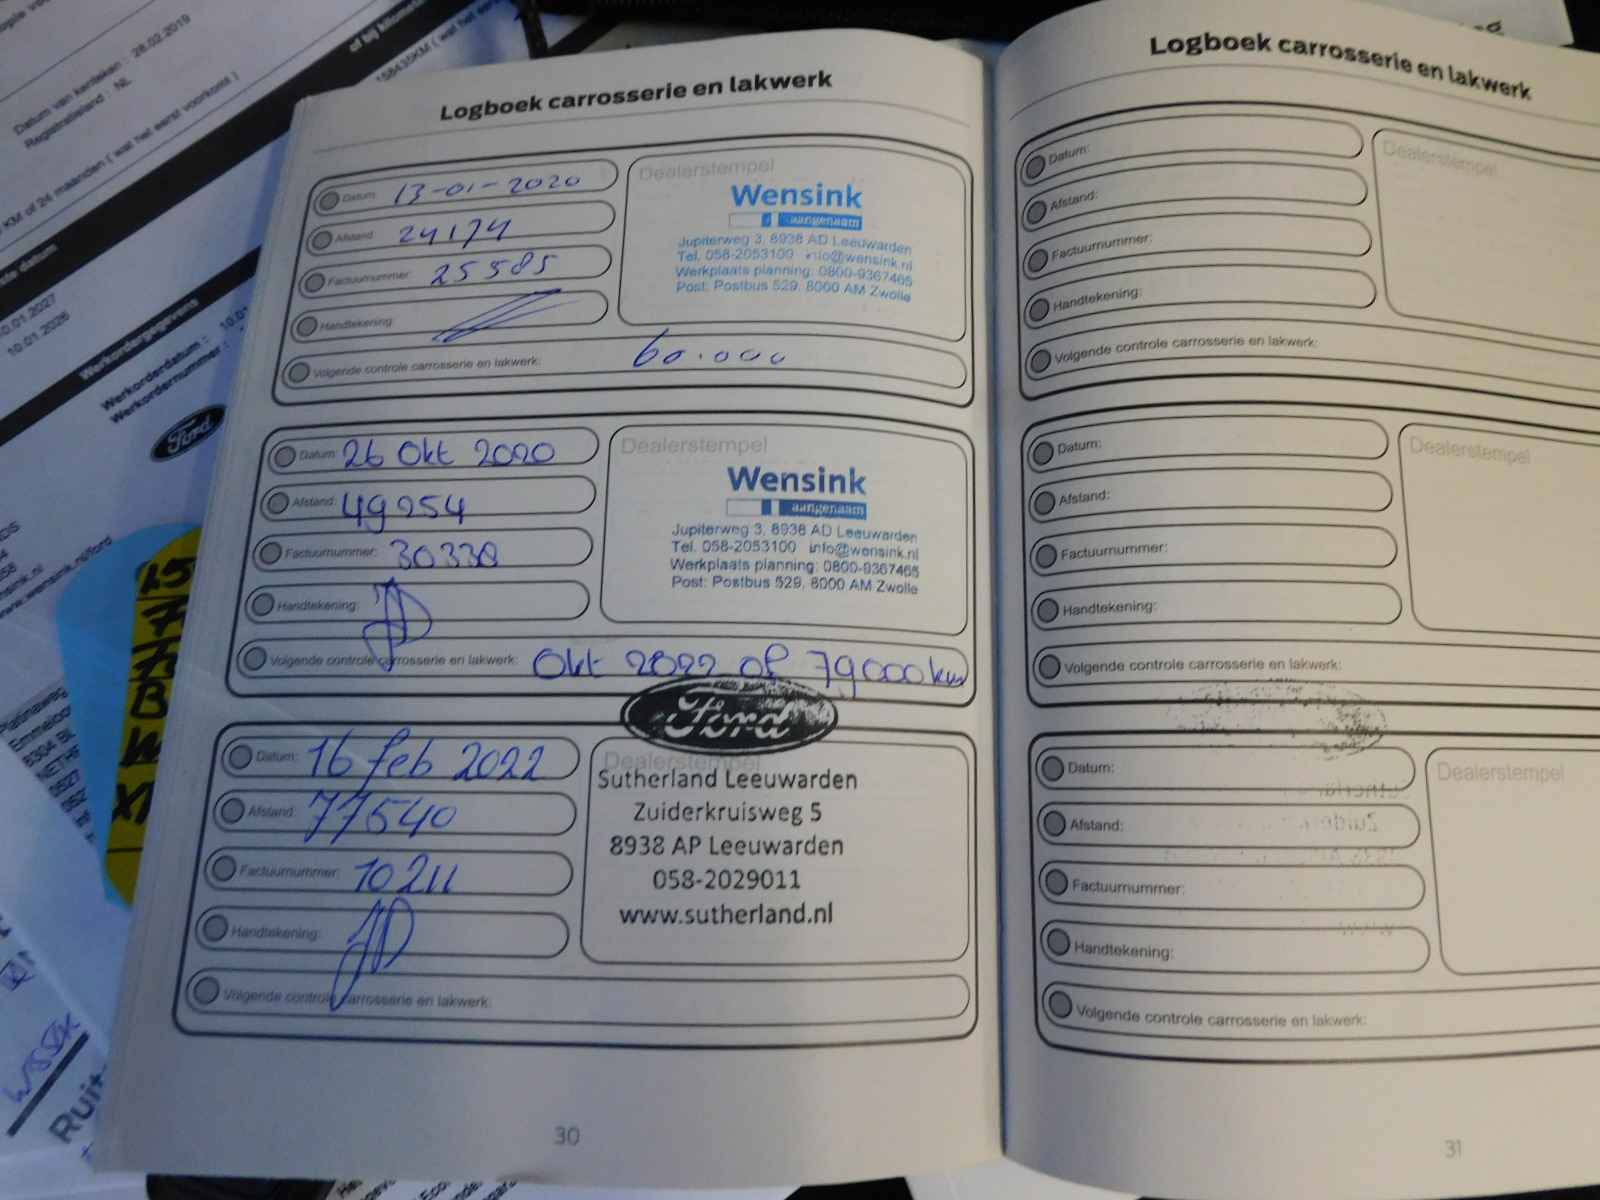 Datum van kentteken : 28.02.2019
Registratieland : NL
KM of 24 maanden ( wat het eerst voorkomt )
of bij kilometer
158435KM ( wat het eerst
10.01.2026
Werkordergegevens
Werkorderdatum : 10.01
Werkordernummer :
Ford
Logboek carrosserie en lakwerk
Datum: 13-01-2020
Afstand: 24174
Factuurnummer: 25585
Handtekening:
Volgende controle carrosserie en lakwerk: 60.000
Dealerstempel
Wensink
aangenaam
Jupiterweg 3, 8938 AD Leeuwarden
Tel. 058-2053100 info@wensink.nl
Werkplaats planning: 0800-9367465
Post: Postbus 529, 8000 AM Zwolle
Datum: 26 Okt 2020
Afstand: 49254
Factuurnummer: 30338
Handtekening:
Volgende controle carrosserie en lakwerk: Okt 2022 of 79000km
Dealerstempel
Wensink
aangenaam
Jupiterweg 3, 8938 AD Leeuwarden
Tel. 058-2053100 info@wensink.nl
Werkplaats planning: 0800-9367465
Post: Postbus 529, 8000 AM Zwolle
Datum: 16 feb 2022
Afstand: 77540
Factuurnummer: 10211
Handtekening:
Volgende controle carrosserie en lakwerk:
Ford
Dealerstempel
Sutherland Leeuwarden
Zuiderkruisweg 5
8938 AP Leeuwarden
058-2029011
www.sutherland.nl
30
Logboek carrosserie en lakwerk
Datum:
Afstand:
Factuurnummer:
Handtekening:
Volgende controle carrosserie en lakwerk:
Dealerstempel
Datum:
Afstand:
Factuurnummer:
Handtekening:
Volgende controle carrosserie en lakwerk:
Dealerstempel
Datum:
Afstand:
Factuurnummer:
Handtekening:
Volgende controle carrosserie en lakwerk:
Dealerstempel
31